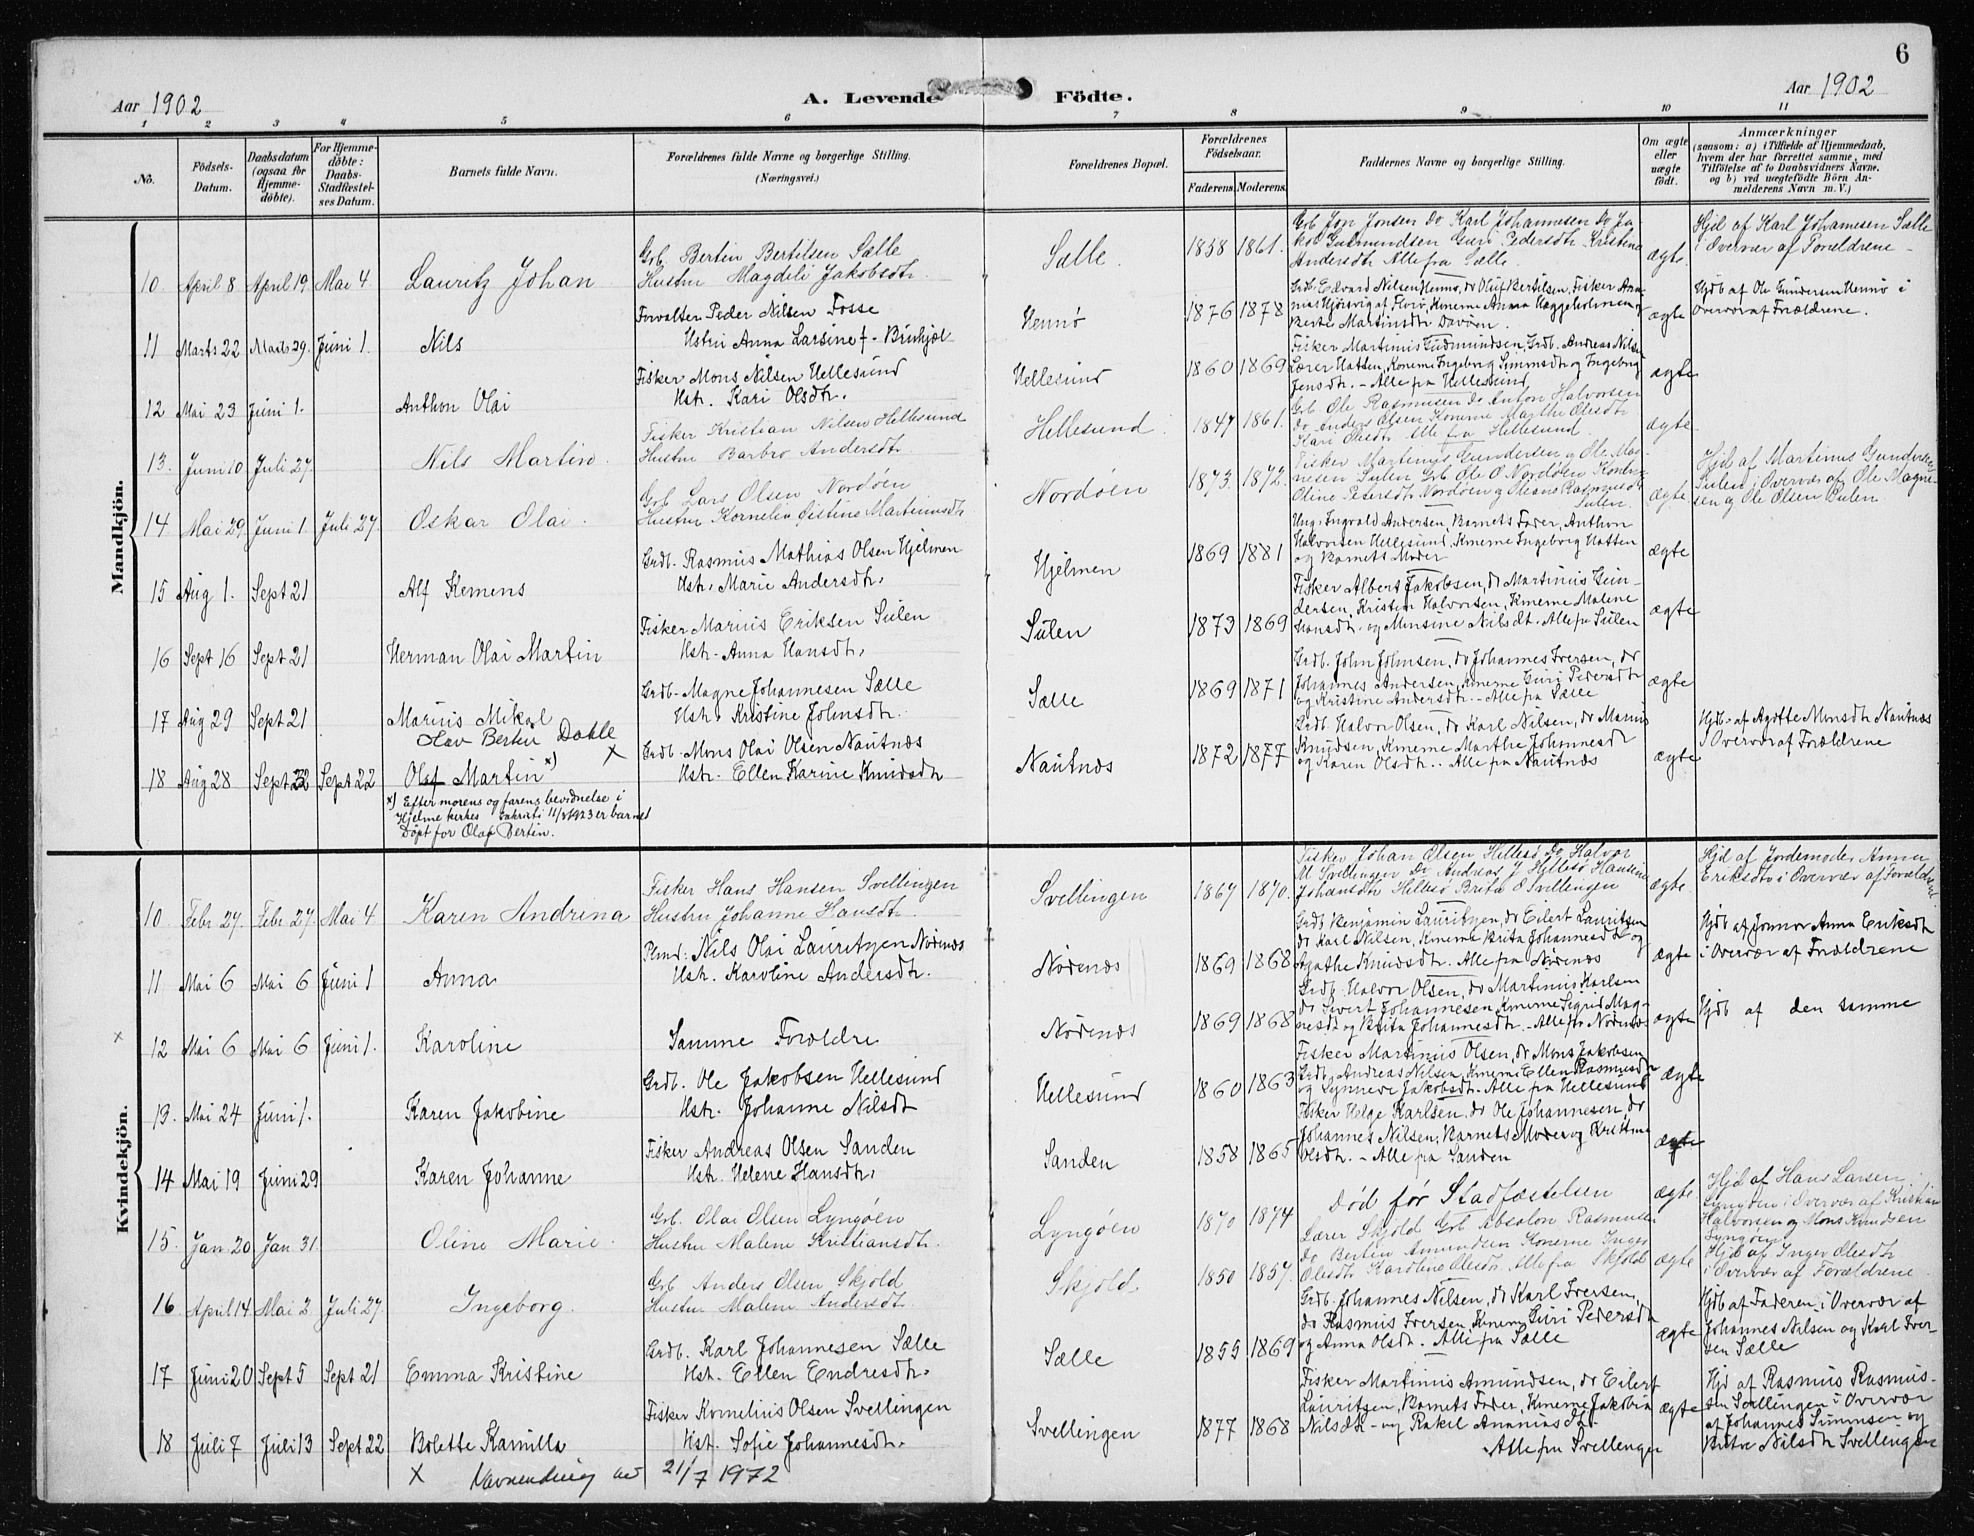 6
Aar 1902
A. Levende Födte.
Aar 1902
1 2 3 4 5 6 7 8 9 10 11
No.
Födsels-Datum.
Daabsdatum (ogsaa for Hjemme-døbte).
For Hjemme-døbte: Daabs-Stadfæstelses Datum.
Barnets fulde Navn.
Forældrenes fulde Navne og borgerlige Stilling.
(Næringsvei.)
Forældrenes Bopæl.
Forældrenes Födselsaar.
Faderens. Moderens.
Faddernes Navne og borgerlige Stilling.
Om ægte eller uægte födt.
Anmærkninger
(saasom: a) i Tilfælde af Hjemmedaab, hvem der har forrettet samme, med Tilföielse af to Daabsvidners Navne. og b) ved uægtefödte Börn Anmelderens Navn m. V.)
Mandkjön.
10 April 8 April 19. Mai 4 Lauritz Johan
Grb. Bertin Bertilsen Sælle
Hustru Magdeli Jakobsdtr.
Sælle. 1858 1861.
Grb Jon Jonsen Do Karl Johannesen Do Ja-
kob Gudmundsen Guro Pedersdtr Kristine
Andersdtr Alle fra Sælle.
ægte.
Hjd af Karl Johannesen Sælle
i Overvær af Forældrene
11 Marts 22 Marts 29. Juni 1. Nils
Forvalter Peder Nilsen Fosse
Hstru Anna Larsine f. Birkjel
Hennø 1876 1878
Grdb. Edvard Nilsen Hennø, do Oluf Bertilsen, Fisker
Berte Martinsdtr Davøen.
ægte
Hjdb af Ole Gundersen Hennø i
Overvær af Forældrene.
12 Mai 23 Juni 1. Anthon Olai
Fisker Mons Nilsen Hellesund
Hstr. Kari Olsdtr.
Hellesund 1860 1869
Fisker Martinus Gudmundsen, Grdb. Andreas Nilsen
Lærer Hatten, Konerne Ingeborg Simonsdtr og Ingeborg
Jensdtr. - Alle fra Hellesund
ægte
13. Juni 10 Juli 27. Nils Martin.
Fisker Kristian Nilsen Hellesund
Hustru Barbro Andersdtr
Hellesund. 1847 1861.
Grb Ole Rasmusen Do Anton Halvorsen
Do Anders Olsen Konerne Marthe Olesdtr
Kari Olesdtr Alle fra Hellesund.
ægte
14 Mai 29 Juni 1. Juli 27. Oskar Olai.
Grb Lars Olsen Nordøen
Hustru Kornelia Martinusdtr
Nordøen 1873. 1872.
Fisker Martinus Gundersen og Ole Mag-
nesen Sulen Grb Ole O Nordøen Konerne
Oline Pedersdtr Nordøen og Rasmusdtr
Sulen.
ægte
Hjd af Martinus Gundersen
Sulen i Overvær af Ole Magne-
sen og Ole Olsen Sulen
15 Aug 1. Sept 21 Alf Klemens
Grdb. Rasmus Mathias Olsen Hjelmen
Hstr. Marie Andersdtr.
Hjelmen 1869 1881
Ung. Ingvald Andersen, Barnets Fader, Anthon
Halvorsen Hellesund, Knerne Ingeborg Hatten
og Barnets Moder
ægte
16 Sept 16 Sept 21 Herman Olai Martin
Fisker Marius Eriksen Sulen
Hstr. Anna Hansdtr.
Sulen 1873 1869
Fisker Albert Jakobsen, do Martinus Gun-
dersen, Kristen Halvorsen, Knerne Malene
Hansdtr. og Monsine Nilsdtr. Alle fra Sulen
ægte
17 Aug 29 Sept 21 Marius Mikal
Grdb. Magne Johannesen Sælle
Hstr. Kristine Johnsdtr.
Sælle 1869 1871
Grdb. John Johnsen, do Johannes Iversen, do
Johannes Andersen, Knerne Guri Pedersdtr
og Kristine Andersdtr. - Alle fra Sælle
ægte
18 Aug 28 Sept 22 Sept 22 Olav Bertin Dahle
Olaf Martin x) ×
Grdb. Mons Olai Olsen Nautnæs
Hstr. Ellen Karine Knudsdtr
Nautnæs 1872 1877
Grdb Halvor Olsen, do Karl Nilsen, do Marius
Knudsen, Knerne Marthe Johannesdtr
og Karen Olsdtr. . Alle fra Nautnæs
ægte
Hjdb. af Agathe Monsdtr Nautnæs
i Overvær af Forældrene
x) Efter morens og farens bevidnelse i
Hjelme kirkes sakristi 11/3 1923 er barnet
døpt for Olaf Bertin.
Kvindekjön.
10 Febr 27. Febr 27. Mai 4 Karen Andrina
Fisker Hans Hansen Svellingen
Hustru Johanne Hansdtr.
Svellingen 1867 1870.
Fisker Johan Olsen Hellesø Do Halvor
M Svellingen Do Andreas J Hellesø
Johansdtr Hellesø Brita O Svellingen
ægte
Hjd af Jordemoder Anna
Eriksdtr i Overvær af Forældrene
11 Mai 6 Mai 6 Juni 1 Anna
Plmd. Nils Olai Lauritzen Nørenæs
Hstr. Karoline Andersdtr.
Nørenæs 1869 1868
Grdb Benjamin Lauritzen, do Eilert Lauritsen
do Karl Nilsen, Knerne Brita Johannesdtr og
Agathe Knudsdtr. Alle fra Nørenæs
ægte
Hjdb af Jormor Anna Eriksdtr
i Overvær af Forældrene
× 12 Mai 6 Mai 6 Juni 1. Karoline
Samme Forældre
Nørenæs 1869 1868
Grdb. Halvor Olsen, do Martinus Karlsen
do Sivert Johannesen, Knerne Sigrid Mag-
nesdtr og Brita Johannesdtr. - Alle fra Nørenæs
ægte
Hjdb af den samme
13. Mai 24 Juni 1. Karen Jakobine
Grdb. Ole Jakobsen Hellesund
Hstr. Johanne Nilsdtr
Hellesund 1860 1863
Fisker Martinus Olsen, do Mons Jakobsen
Grdb. Andreas Nilsen, Knerne Ellen Rasmusdtr
og Synneve Jakobsdtr. Alle fra Hellesund
ægte
14 Mai 19 Juni 29 Karen Johanne
Fisker Andreas Olsen Sanden
Hstr. Helene Hansdtr.
Sanden 1858 1865
Fisker Helge Karlsen, do Ole Johannesen, do
Johannes Nilsen, Barnets Moder og Kristine
Olsdtr. - Alle fra Sanden
ægte
15. Jan 20 Jan 31 Oline Marie.
Grb. Olai Olsen Lyngøen
Hustru Malene Kristiansdtr.
Lyngøen 1870 1874
Død før Stadfæstelsen
ægte
Hjd af Hans Larsen
Lyngøen i Overvær af Kristian
Halvorsen og Mons Knudsen
Lyngøen
16 April 14 Mai 2 Juli 27. Ingeborg.
Grb Anders Olsen Skjold
Hustru Malene Andersdtr
Skjold 1850 1857.
Lærer Skjold Grb Absalon Rasmusen
Do Bertin Amundsen Konerne Inger
Olesdtr Karoline Olesdtr Alle fra Skjold
ægte
Hjd af Inger Olesdtr
i Overvær af Forældrene
17 Juni 20 Sept 5 Sept 21 Emma Kristine
Grdb. Karl Johannesen Sælle
Hst. Ellen Endresdtr.
Sælle 1855 1869
Grdb. Johannes Nilsen, do Karl Iversen,
do Rasmus Iversen, Knerne Guri Pedersdtr
og Anna Olsdtr. Alle fra Sælle
ægte
Hjdb af Faderen i Overvær af
Johannes Nilsen og Karl Iver-
sen Sælle
18 Juli 7 Juli 13 Sept 22 Bolette Kamilla
Fisker Kornelius Olsen Svellingen
Hst. Sofie Johannesdtr.
Svellingen 1877 1868
Fisker Martinus Amundsen, do Eilert
Lauritsen, Barnets Fader, Knerne Jakobia
Nilsdtr - og Rakel Ananiasdtr.
Alle fra Svellingen
ægte
Hjd af Rasmus Rasmus-
sen Svellingen i Overvær
af Johannes Simonsen og
Brita Nilsdtr Svellingen
× Navnendring av 21/7 1972